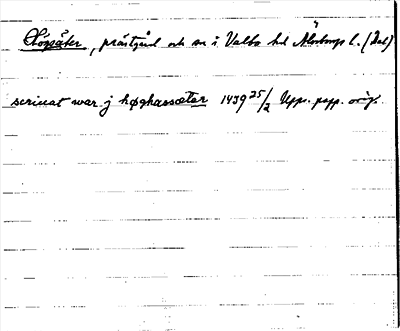 Högsäter, prästgård och sn i Valbo hd Älvsborgs l. (Dal)
scriuat war j høghassætar 1439 25/2 Upps. papp. orig.